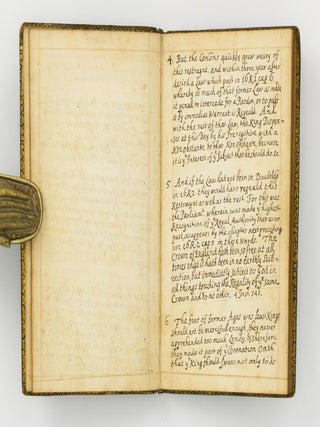 4 But the Com̃ons quickly grew weary of
this restraynt, and within three year after
desird a Law which past in 16 R2 cap 6
whereby so much of that former Law as made
it penall to intercede for a Pardon or to pass
it by im̃ediat Warrant is Repeald. And
with the rest of that Law, the King Dispen=
ses at this Day by his Prerogative with a
Non obstante to that Non obstante, because
it is yᵉ Interest of yᵉ Subject that he should do so.
5 And if the Law had not been so Doubtles
in 16 R2 they would have repeald this
Restraynt as well as the rest For this was
the Parliamᵗ wherein was made yᵉ highest
Recognition of yᵉ Royal Authority that ever
past, as appears by the chapter next preceding
viz 16 R2 cap 5 in these Words The
Crown of England hath been so free at all
times that it hath been in no Earthly Sub=
jection, but immediately subject to God in
all things touching the Regality of yᵉ same
Crown and to no other. 4 Inst 341.
6 The fear of former Ages was least Kings
should not be mercifull enough, they never
apprehended too much Lenity, & therefore
they made it part of yᵉ Coronation Oath
that yᵉ King should swear not only to do